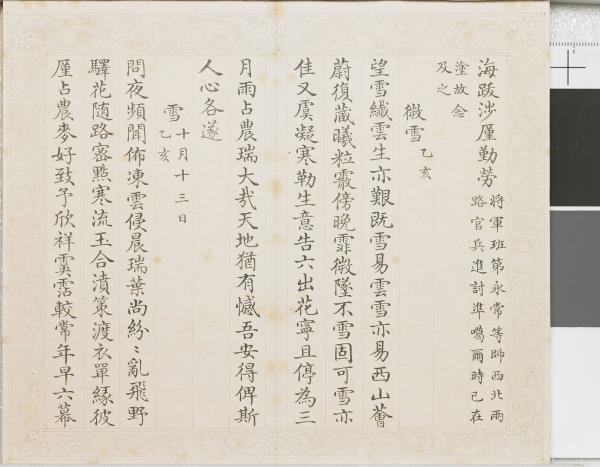 海跋涉厪勤勞 將軍班第永常等帥西北兩
路官兵進討準噶爾時已在
塗故念
及之
微雪 乙亥
望雪纎雲生亦艱既雪易雲雪亦易西山薈
蔚復蕆曦粒霰傍晚霏微墜不雪固可雪亦
佳又虞凝寒勒生意告六出花寧且停為三
月雨占農瑞大哉天地猶有憾吾安得俾斯
人心各遂
雪 十月十三日
乙亥
問夜頻聞佈凍雲侵晨瑞葉尚紛〻亂飛野
驛花随路密㸃寒流玉合濆策渡衣單縁彼
厪占農麥好致予欣祥霙霑較常年早六幕